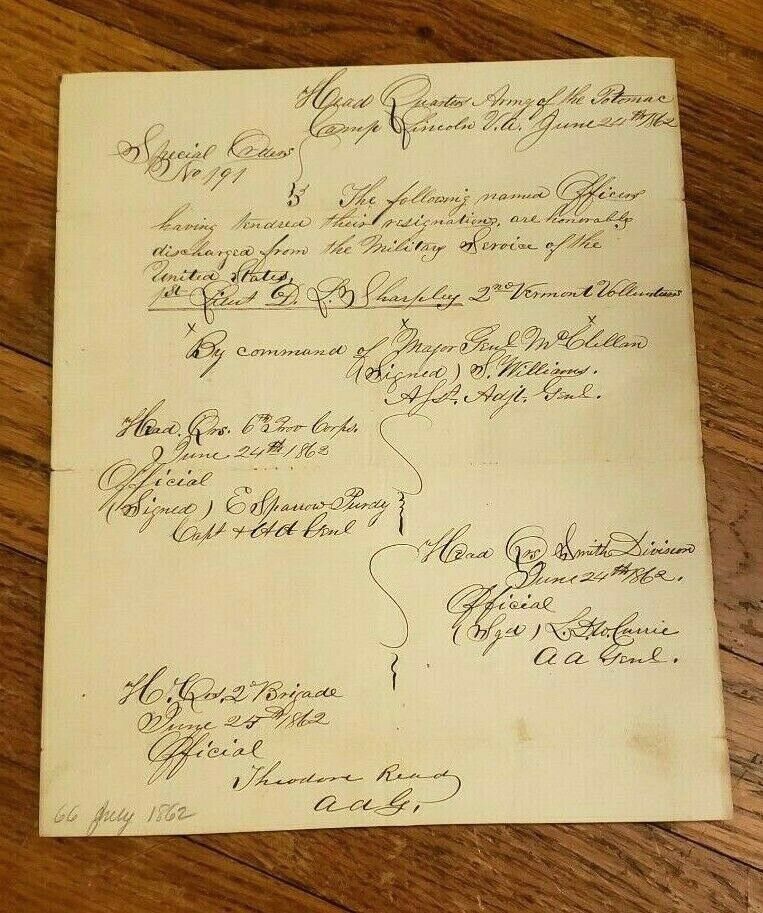 Head Quarters Army of the Potomac
Camp Lincoln Va. June 24th 1862
Special Orders
No 191
The following named Officers
having tendred their resignations, are honorably
discharged from the Military Service of the
United States,
1st Lieut D. L. Sharpley 2nd Vermont Volunteers
x x x
By command of Major Genl McClellan
(Signed) S. Williams.
Asst. Adjt. Genl.
Head. Qrs. 6th Prov Corps.
June 24th 1862
Official
(Signed) E Sparrow Purdy
Capt & AA Genl
Head Qrs Smith Division
June 24th 1862.
Official
(Sgd) L. D. H. Currie
AA Genl.
H. Qrs. 2d Brigade
June 25th 1862
Official
Theodore Read
A A G.
66 July 1862